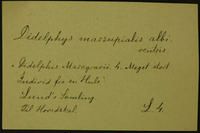 Didelphys marsupialis albi-
ventris.
"Didelphis Marcgravii 4. Meget stort
Individ fra en Hule"
Lund's Samling
Til Hovedskel. L 4.